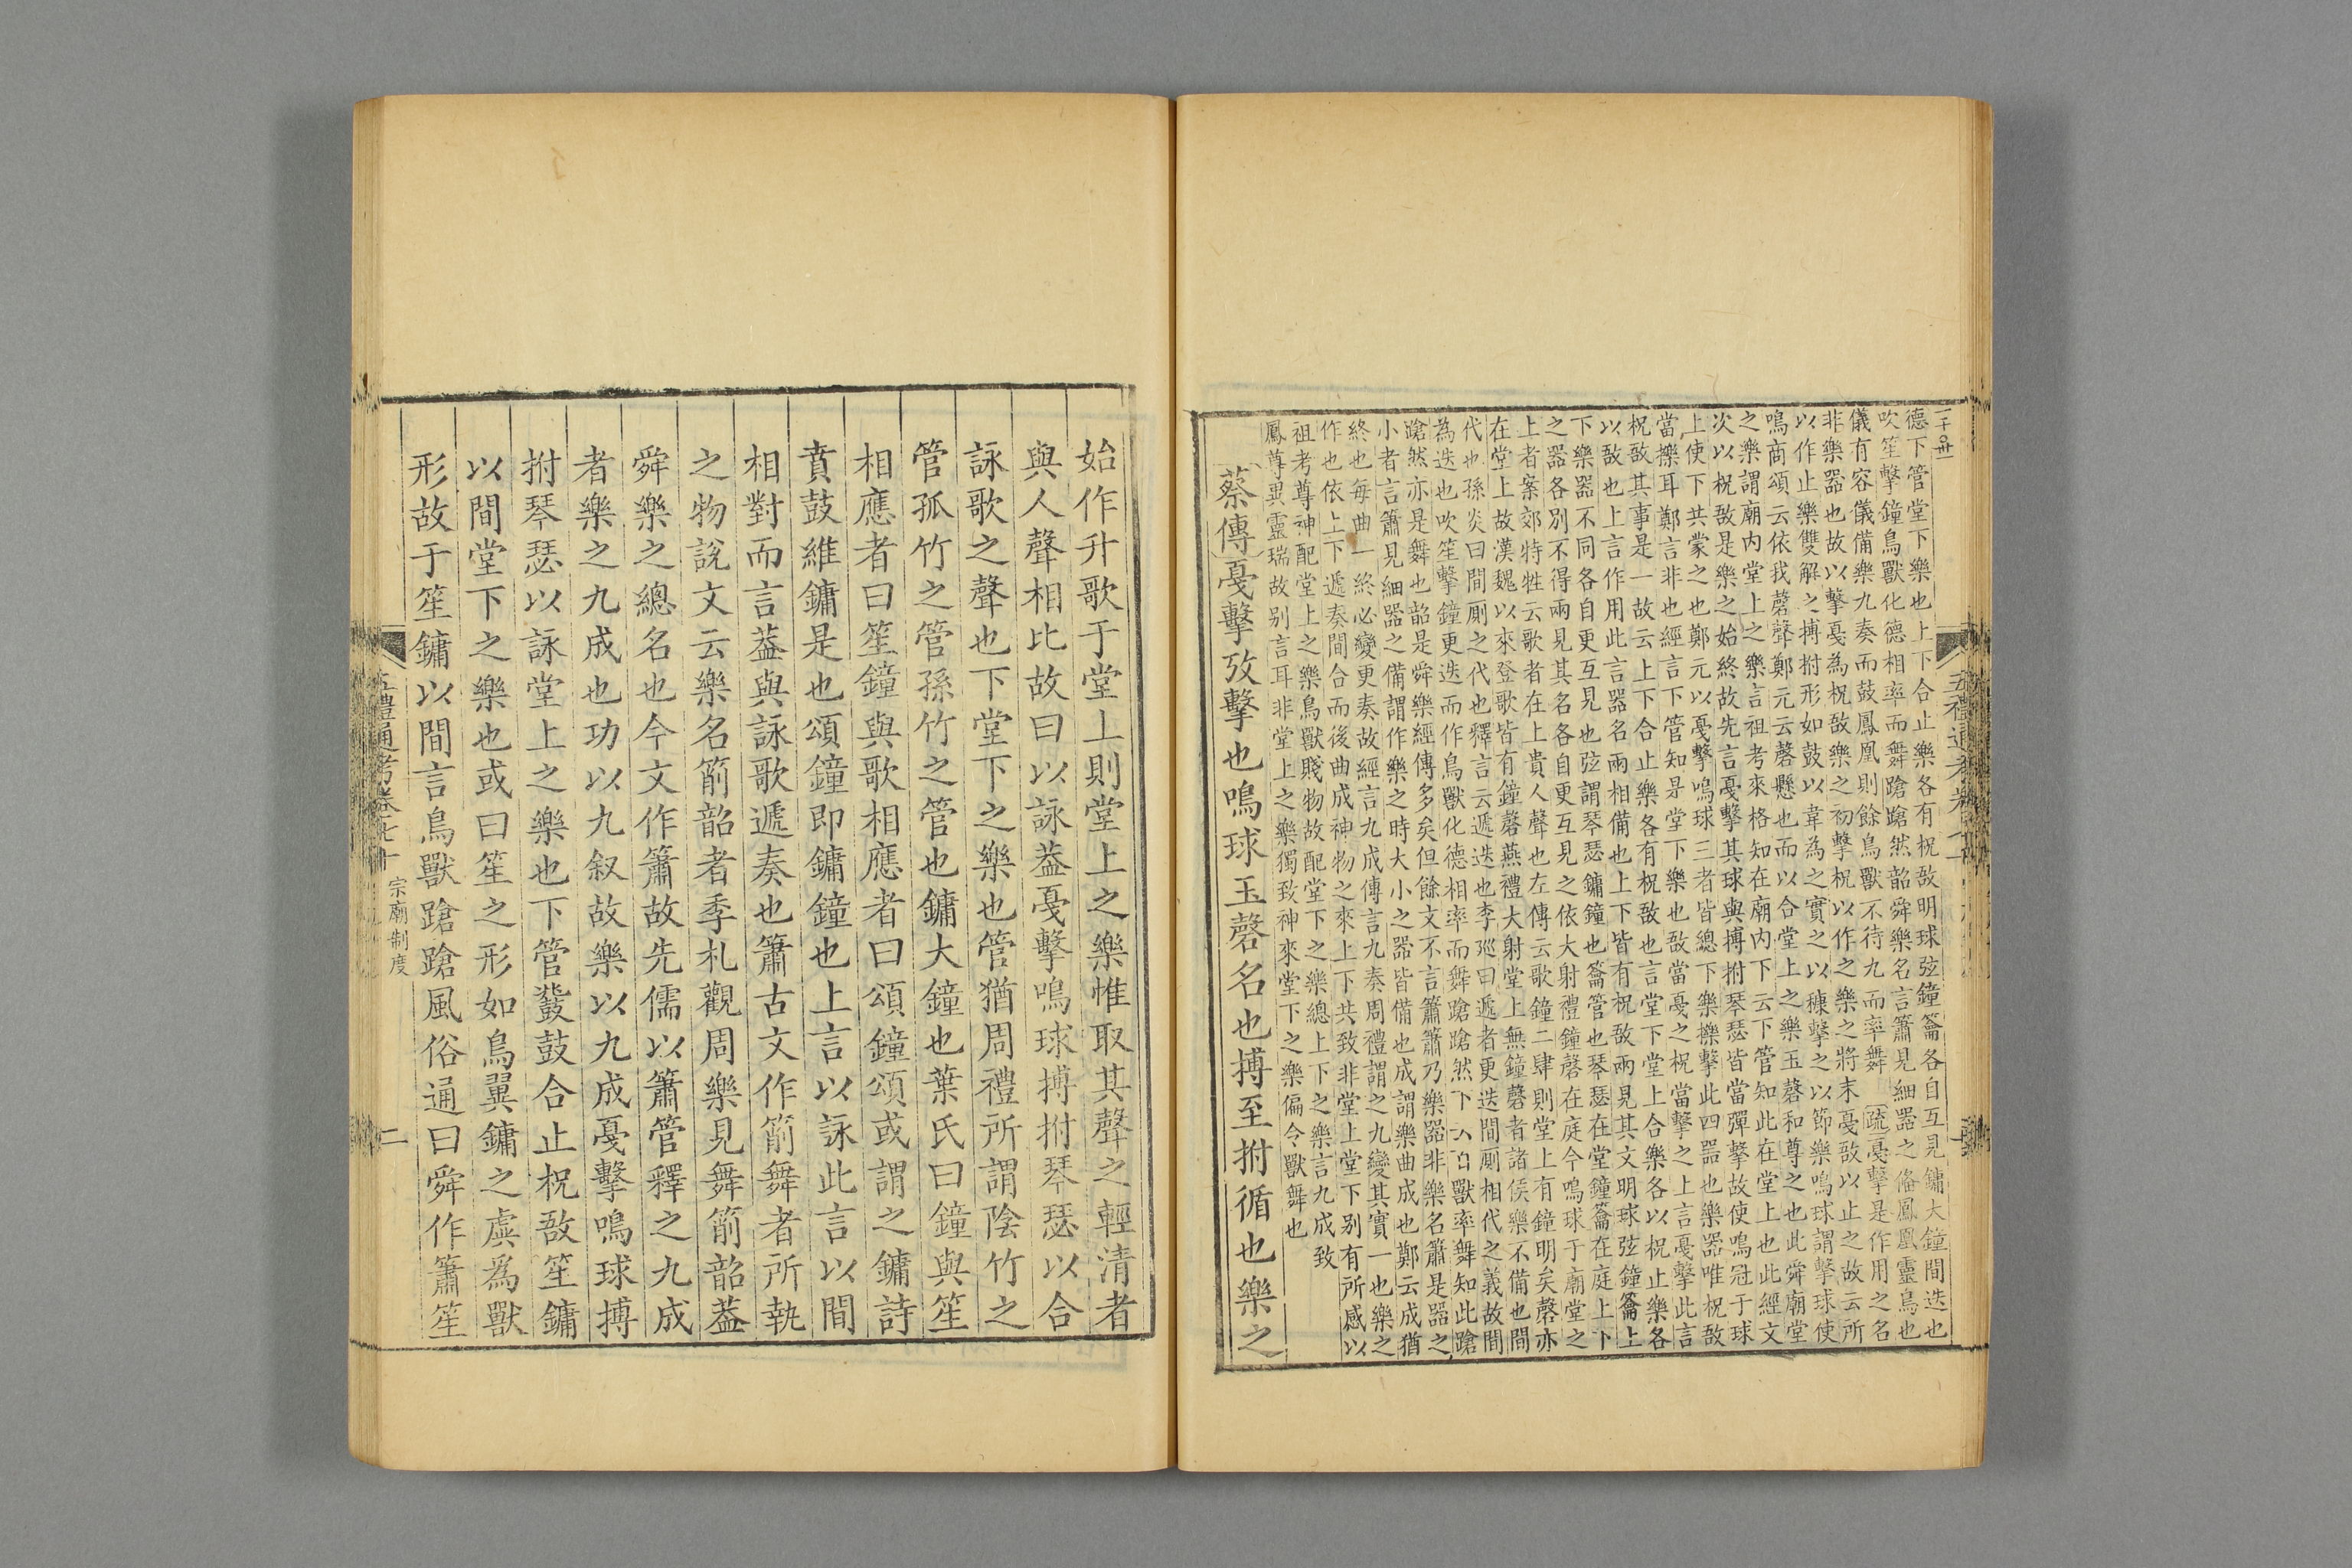 德下管堂下樂也上下合止樂各有柷敔明球弦鐘籥各自互見鏞大鐘間迭也
吹笙擊鐘鳥獸化德相率而舞蹌蹌然韶舜樂名言簫見細器之備鳳凰靈鳥也
儀有容儀備樂九奏而鼓鳳凰則餘鳥獸不待九而率舞〔疏〕戛擊是作用之名
非樂器也故以擊戛為柷敔樂之初擊柷以作之樂之將末戛敔以止之故云所
以作止樂雙解之搏拊形如鼓以韋為之實之以穅擊之以節樂鳴球謂擊球使
鳴商頌云依我磬聲鄭元云磬懸也而以合堂上之樂玉磬和尊之也此舜廟堂
之樂謂廟内堂上之樂言祖考來格知在廟内下云下管知此在堂上也此經文
次以柷敔是樂之始終故先言戛擊其球與搏拊琴瑟皆當彈擊故使鳴冠于球
上使下共蒙之也鄭元以戛擊鳴球三者皆總下樂櫟擊此四器也樂器唯柷敔
當櫟耳鄭言非也經言下管知是堂下樂也敔當戛之柷當擊之上言戛擊此言
柷敔其事是一故云上下合止樂各有柷敔也言堂下堂上合樂各以柷止樂各
以敔也上言作用此言器名兩相備也上下皆有柷敔兩見其文明球弦鐘籥上
下樂器不同各自更互見也弦謂琴瑟鏞鐘也籥管也琴瑟在堂鐘籥在庭上下
之器各别不得兩見其名各自更互見之依大射禮鐘磬在庭今鳴球于廟堂之
上者案郊特牲云歌者在上貴人聲也左傳云歌鐘二肆則堂上有鐘明矣磬亦
在堂上故漢魏以來登歌皆有鐘磬燕禮大射堂上無鐘磬者諸侯樂不備也間
代也孫炎曰間厠之代也釋言云遞迭也李巡曰遞者更迭間厠相代之義故間
為迭也吹笙擊鐘更迭而作鳥獸化德相率而舞蹌蹌然下獸率舞知此蹌
蹌然亦是舞也韶是舜樂經傳多矣但餘文不言簫簫乃樂器非樂名簫是器之
小者言簫見細器之備謂作樂之時大小之器皆備也成謂樂曲成也鄭云成猶
終也每曲一終必變更奏故經言九成傳言九奏周禮謂之九變其實一也樂之
作也依上下遞奏間合而後曲成神物之來上下共致非堂上堂下别有所感以
祖考尊神配堂上之樂鳥獸賤物故配堂下之樂總上下之樂言九成致
鳳尊異靈瑞故别言耳非堂上之樂獨致神來堂下之樂偏令獸舞也
蔡傳戛擊攷擊也鳴球玉磬名也搏至拊循也樂之
始作升歌于堂上則堂上之樂惟取其聲之輕清者
與人聲相比故曰以詠葢戛擊鳴球搏拊琴瑟以合
詠歌之聲也下堂下之樂也管猶周禮所謂陰竹之
管孤竹之管孫竹之管也鏞大鐘也葉氏曰鐘與笙
相應者曰笙鐘與歌相應者曰頌鐘頌或謂之鏞詩
賁鼓維鏞是也頌鐘即鏞鐘也上言以詠此言以間
相對而言葢與詠歌遞奏也簫古文作箾舞者所執
之物說文云樂名箾韶者季札觀周樂見舞箾韶葢
舜樂之總名也今文作簫故先儒以簫管釋之九成
者樂之九成也功以九叙故樂以九成戛擊鳴球搏
拊琴瑟以詠堂上之樂也下管鼗鼓合止柷敔笙鏞
以間堂下之樂也或曰笙之形如鳥翼鏞之虡為獸
形故于笙鏞以間言鳥獸蹌蹌風俗通曰舜作簫笙
五禮通考卷七十 宗廟制度 二